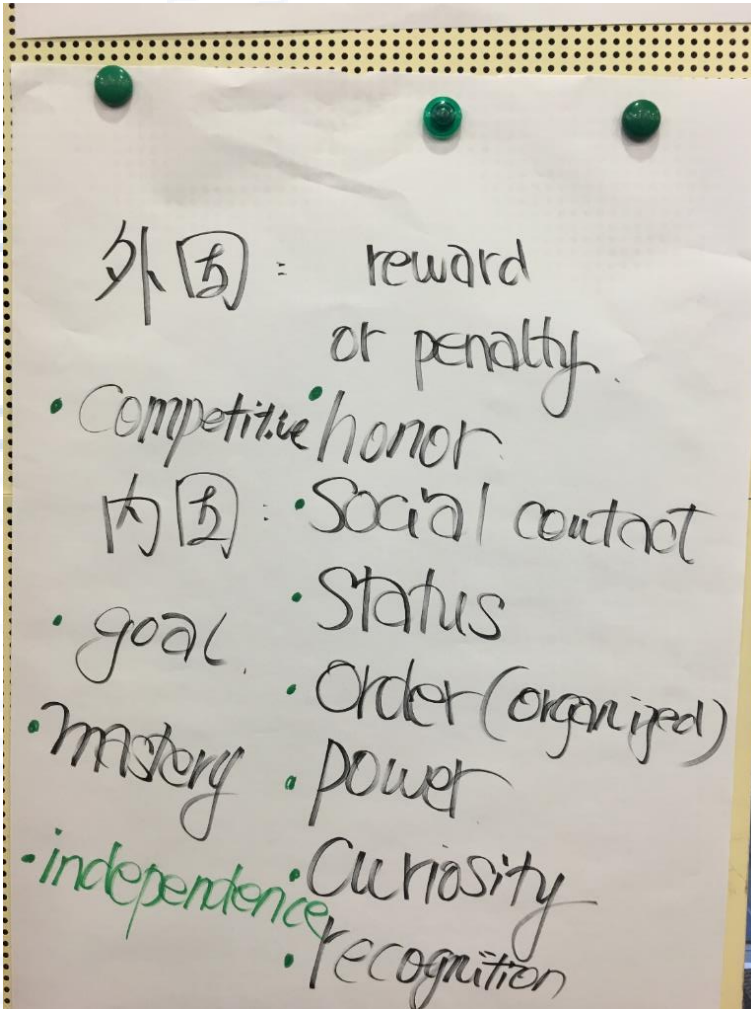 外因: reward
or penalty.
• Competitive • honor
内因: • Social contact
• Status
• goal.
• Order (organized)
• mastery • power
• independence • Curiosity
• recognition